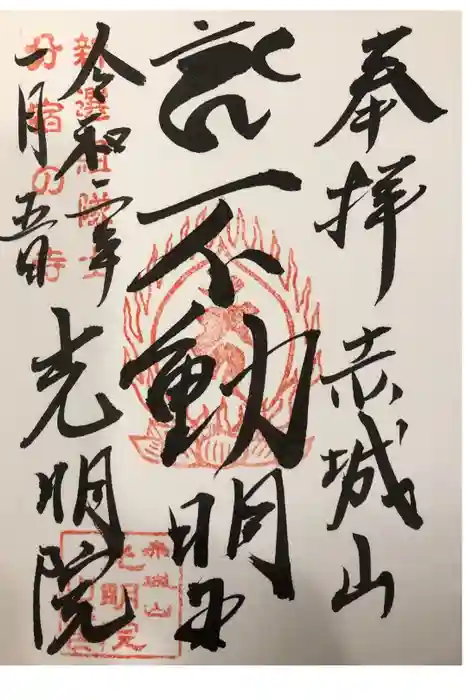 奉拝 赤城山
不動明王
新選組隊士
分宿の寺
令和二年
一月五日
光明院
赤城山
光明院